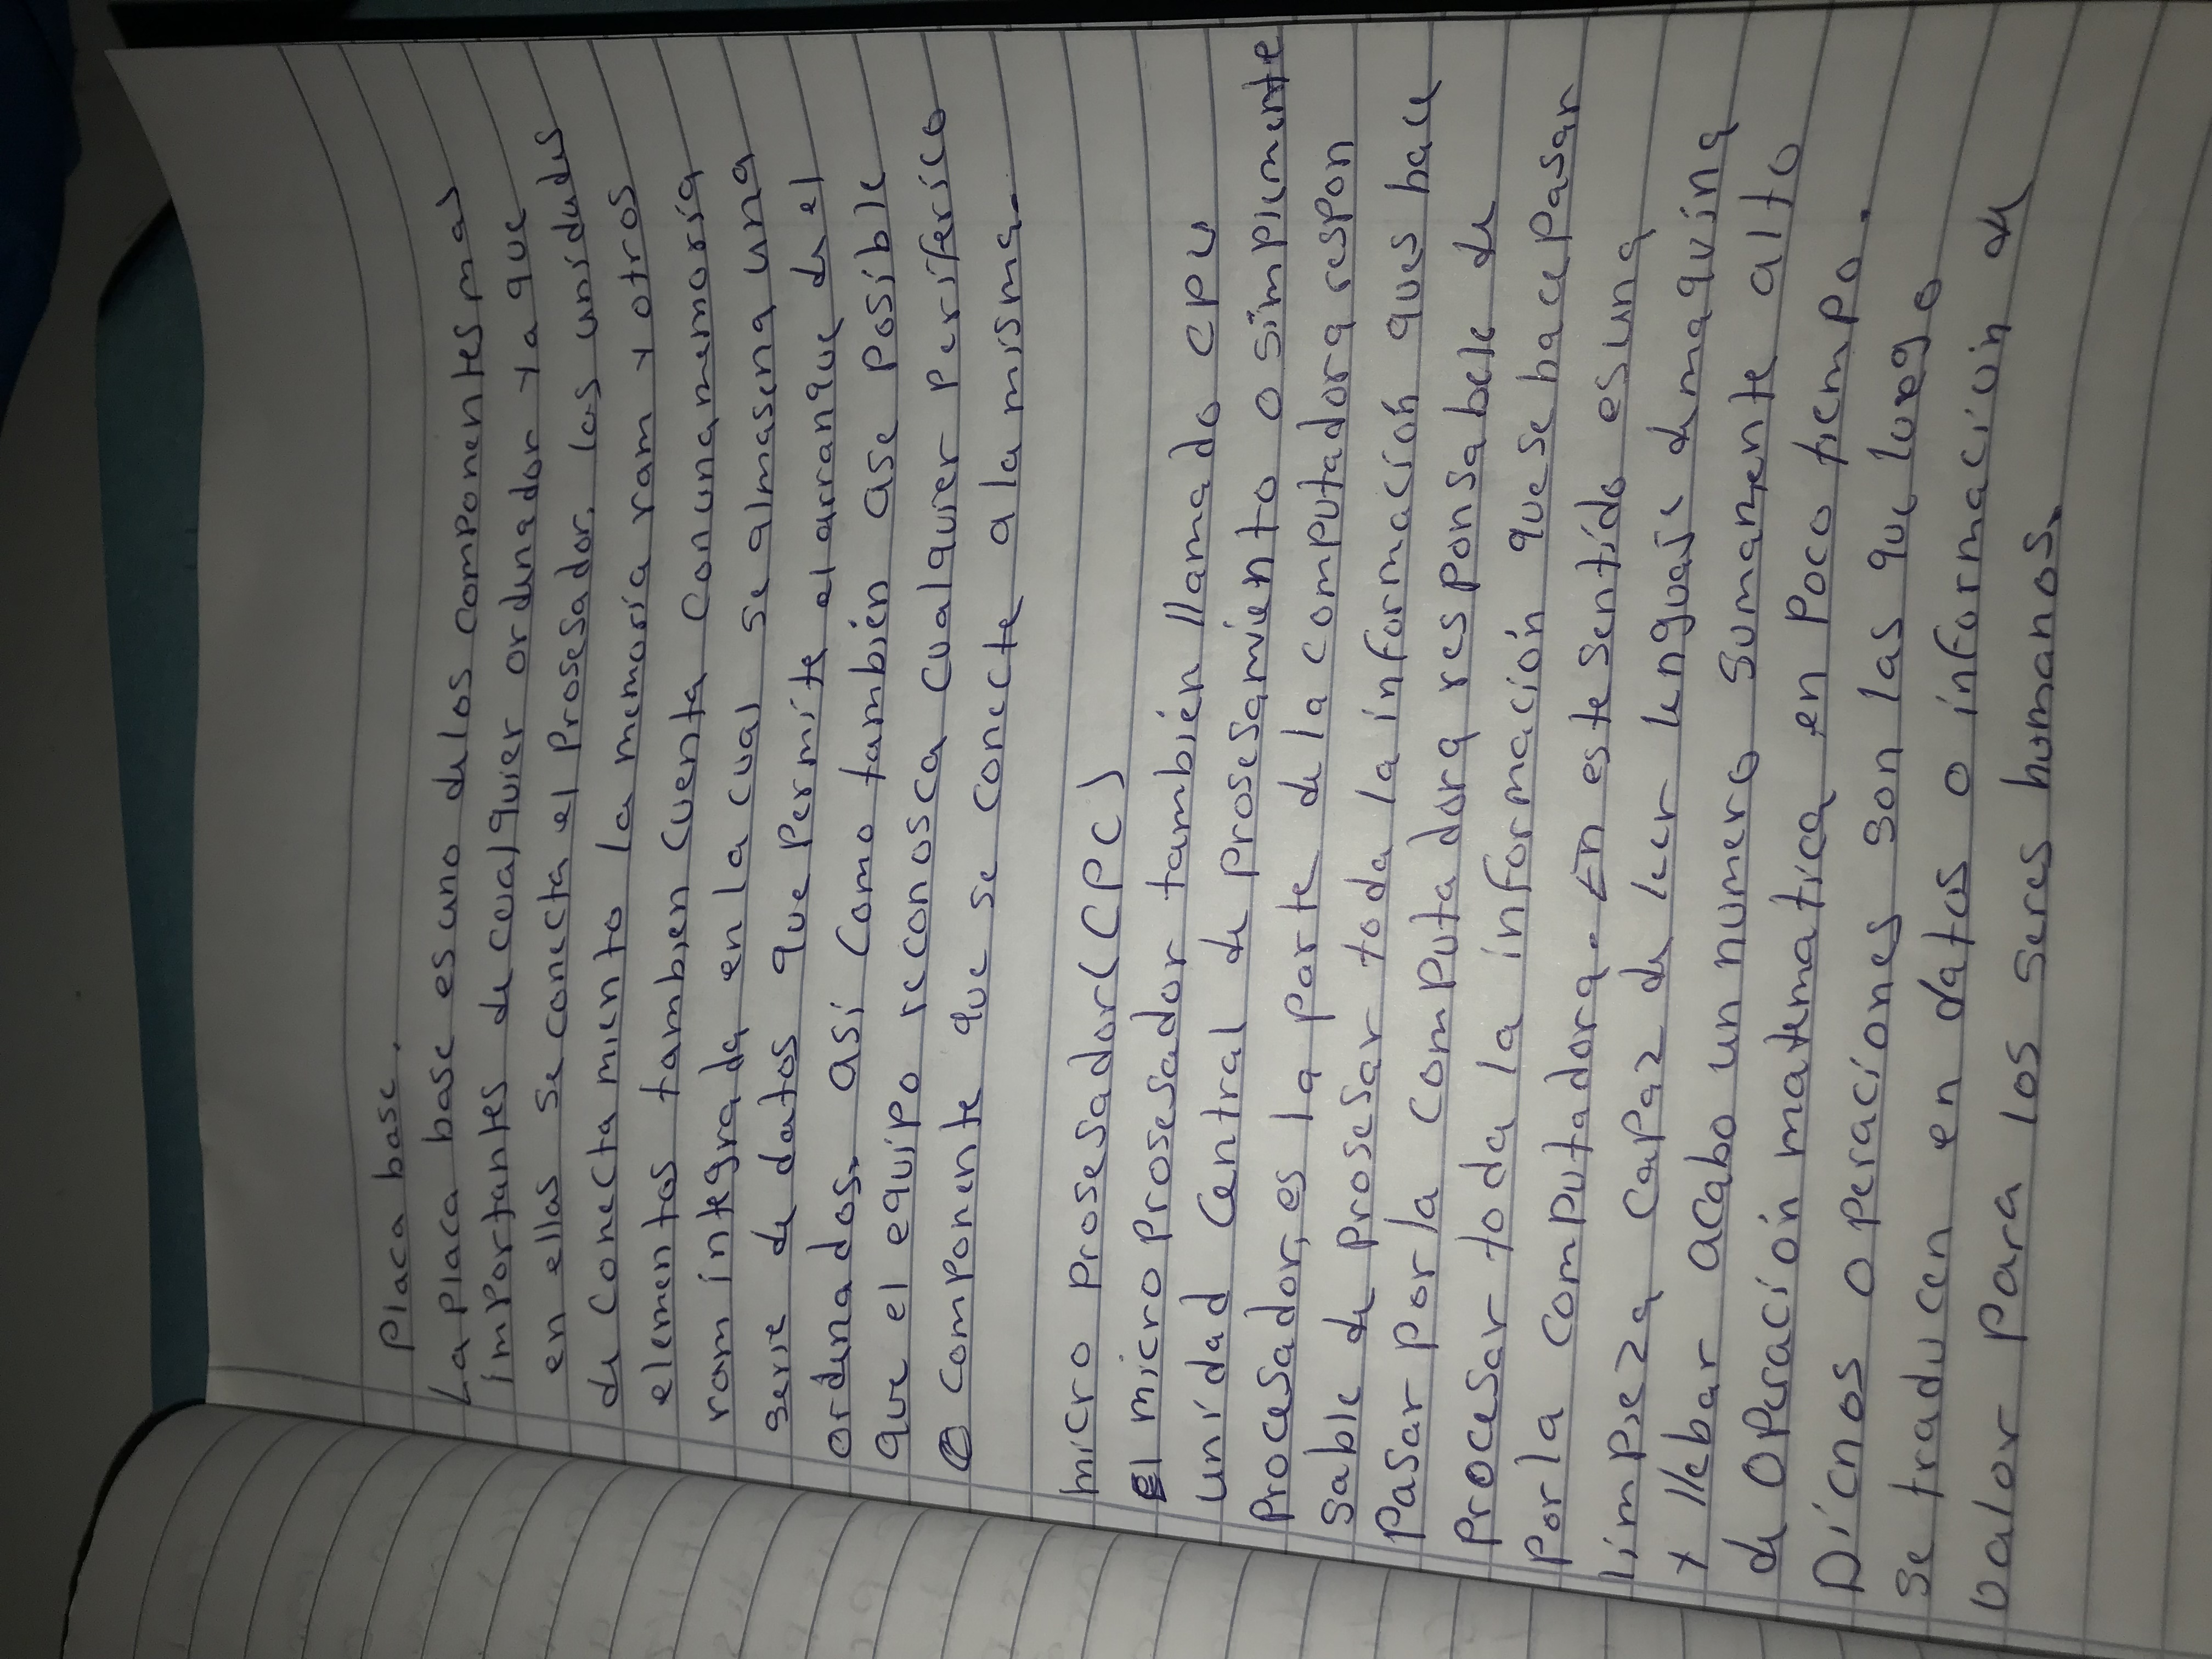 Placa base.
La placa base es uno de los componentes mas
importantes de cualquier ordenador y a que
en ellas se conecta el Prosesador, las unidades
de conectamiento la memoria ram y otros
elementos tambien cuenta con una memoria
ram integrada en la cual se almasena una
serie de datos que Permite el arranque de el
ordenados. así como también ase posible
que el equipo reconosca cualquier periferico
o componente que se conecte a la misma.
Micro prosesador (CPC)
El micro prosesador también llamado CPU
unidad central de prosesamiento o simplemente
Procesador, es la parte de la computadora respon
sable de prosesar toda la información ques hace
Pasar Por la computadora responsabele de
Procesar toda la información que se hace pasar
Por la computadora. En este sentido es una
limpieza capaz de leer lenguaje de maquina
y llebar acabo un numero sumanente alto
de operación matematica en poco tiempo.
Dicnos operaciones son las que luego
se traducen en datos o información de
valor para los seres humanos.